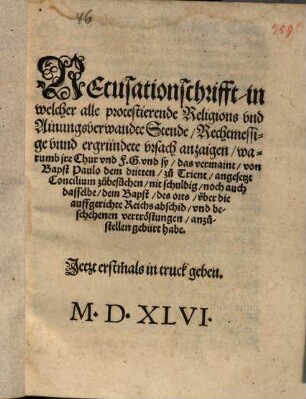 46
REcusationschrifft in
welcher alle protestierende Religions vnd
Ainungsverwandte Stende/ Rechtmessi-
ge vnnd ergründete vrsach anzaigen/ wa-
rumb jre Chur vnd F.G. vnd sy/ das vermaint/ von
Bapst Paulo dem dritten/ zů Trient/ angesetzt
Concilium zůbesůchen/ nit schuldig/ noch auch
dasselbe/ dem Bapst/ des orts/ über die
auffgerichte Reichs abschid/ vnd be-
schehenen vertröstungen/ anzů-
stellen gebürt habe.
Jetzt erstmals in truck geben.
M. D. XLVI.